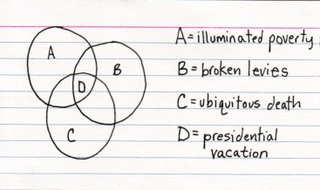 A
B
D
C
A=illuminated poverty
B=broken levies
C=ubiquitous death
D=presidential
vacation